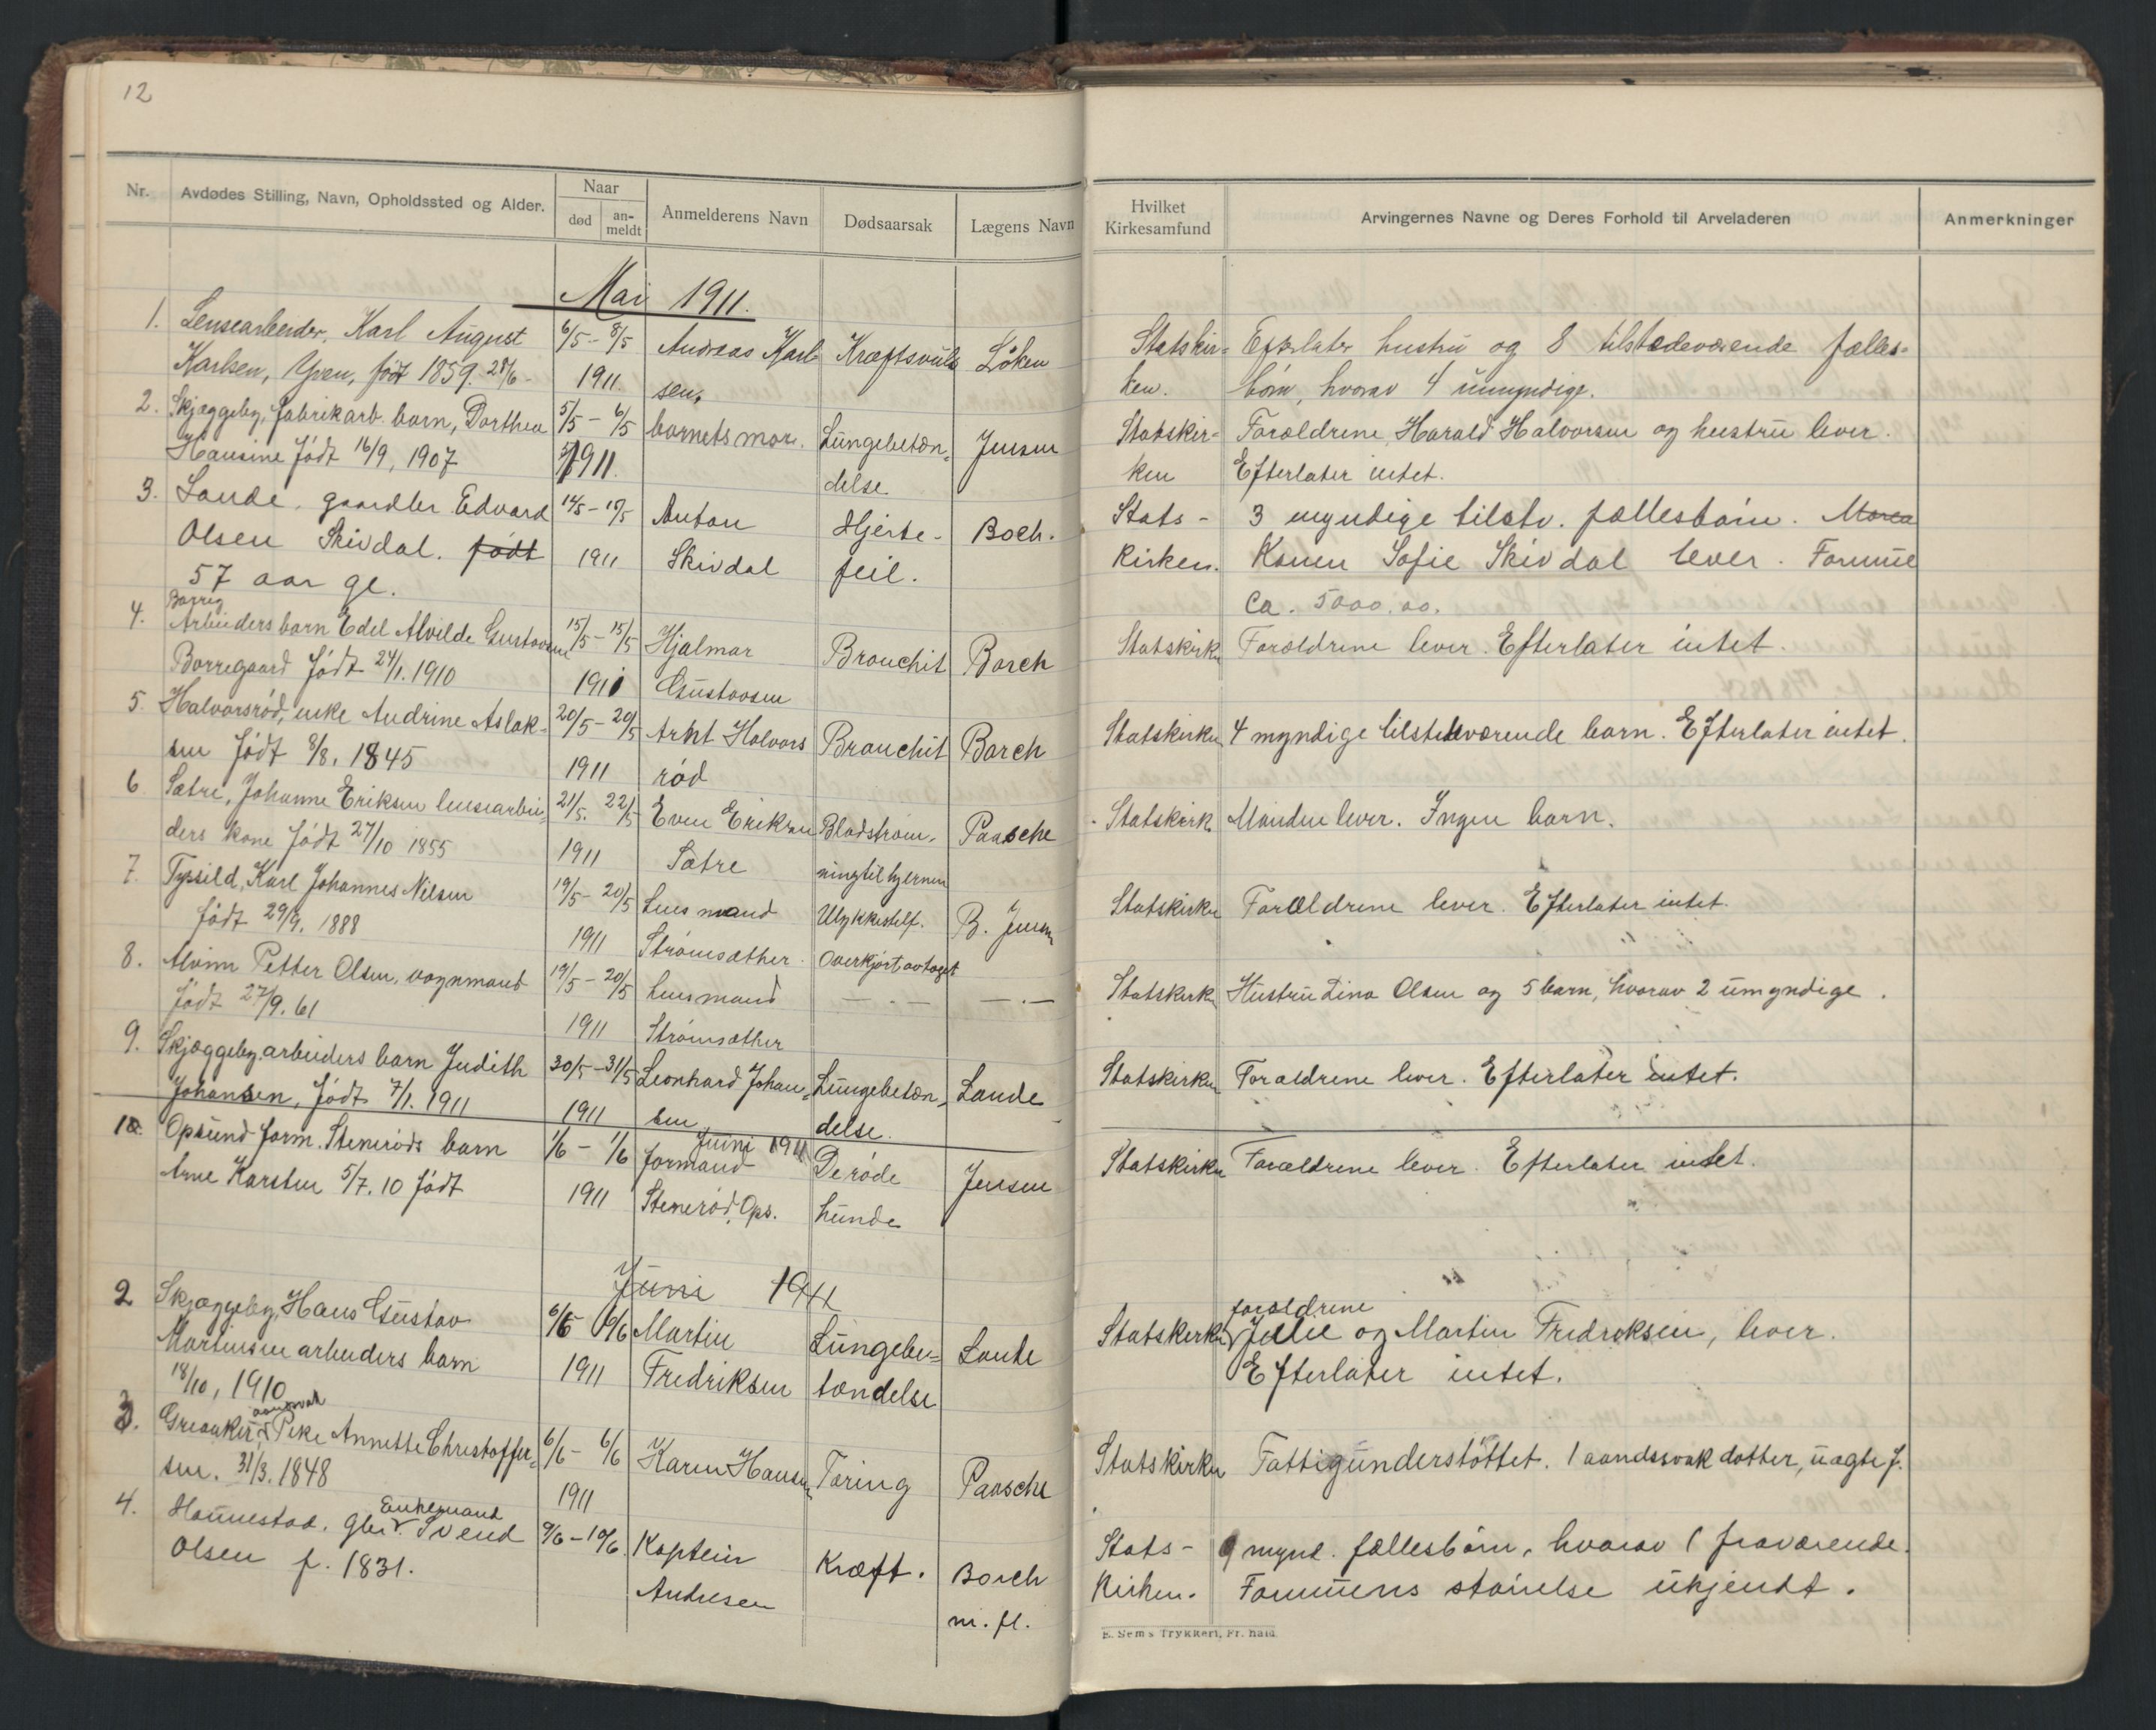 12
Nr. Avdødes Stilling, Navn, Opholdssted og Alder. Naar død an-meldt Anmelderens Navn Dødsaarsak Lægens Navn Hvilket Kirkesamfund Arvingernes Navne og Deres Forhold til Arveladeren Anmerkninger
Mai 1911.
1. Lensearbeider, Karl August 6/5 - 8/5 Andreas Karl Kræftsvulst Löken Statskir= Efterlater hustru og 8 tilstedeværende fælles=
Karlsen, Yven, født 1859. 28/6 - 1911. sen. ken. børn, hvorav 4 umyndige.
2. Skjæggeby, fabrikarb. barn, Dorthea 5/5 - 6/5 barnets mor. Lungebetæn= Jensen Statskir= Forældrene, Harald Halvorsen og hustru lever.
Hansine født 16/9, 1907 1911. delse ken Efterlater intet.
3. Lande, gaardbr. Edvard 14/5 - 17/5 Anton Hjerte- Boch. Stats- 3 myndige tilstv. fællesbørn.
Olsen Skivdal. født 1911 Skivdal feil. Kirken. Konen Sofie Skivdal lever. Formue
57 aar gl. Ca. 5000.00.
4. Borreg
Arbeiders barn Edel Alvilde Gustavsen 15/5 - 15/5 Hjalmar Bronchit Borch Statskirk Forældrene lever. Efterlater intet.
Borregaard født 24/1. 1910 1911 Gustavsen
5. Halvorsrød, enke Andrine Aslak= 20/5 - 20/5 Arnt Halvors Bronchit Borch Statskirken 4 myndige tilstedeværende barn. Efterlater intet.
sen født 8/8. 1845 1911 rød
6. Sætre, Johanne Eriksen lensearbei= 21/5. 22/5 Even Eriksen Blodstrøm- Paasche Statskirk. Manden lever. Ingen barn.
ders kone født 27/10 1855 1911 Sætre ning til hjernen
7. Karl Johannes Nilsen 19/5 - 20/5 Lensmand Ulykkestilf. B. Jensen Statskirken Forældrene lever. Efterlater intet.
født 29/9. 1888 1911 Strømsæther. Overkjørt av toget
8. Petter Olsen, vognmand 19/5 - 20/5 Lensmand — . — — . — Statskirk Hustru Lina Olsen og 5 barn, hvorav 2 umyndige.
født 27/9. 61 1911 Strømsæther
9. Skjæggeby, arbeiders barn Judith 30/5 - 31/5 Leonhard Johan= Lungebetæn= Lande Statskirken Forældrene lever. Efterlater intet.
Johansen, født 7/1. 1911 1911 sen delse.
Juni 1911
10. Opsund form. Stenrøds barn 1/6 - 1/6 formand De røde Jensen Statskirken Forældrene lever. Efterlater intet.
Arne Karsten 5/7. 10 født 1911 Stenerød, Ops. hunde
Juni 1911
2 Skjæggeby, Hans Gustav 6/6 Martin Lungebe= Lande Statskirken forældrene
Julie og Martin Fredriksen, lever.
Martinsen arbeiders barn 1911 Fredriksen tændelse Efterlater intet.
18/10, 1910
3. Greaaker, Pike Annette Christoffer= 6/6 - 6/6 Karen Hansen Tæring Paasche Statskirken Fattigunderstøttet. 1 aandssvak datter, uægte f.
sen. 31/3. 1848 1911
4. Hannestad. gbr. Enkemand Svend 9/6 - 10/6. Kaptein Kræft. Borch Stats- 9 mynd. fællesbørn, hvorav 1 fraværende.
Olsen f. 1831. Andresen m. fl. Kirken. Formuens størrelse ukjendt.
E. Sem's Trykkeri, Fr.hald.